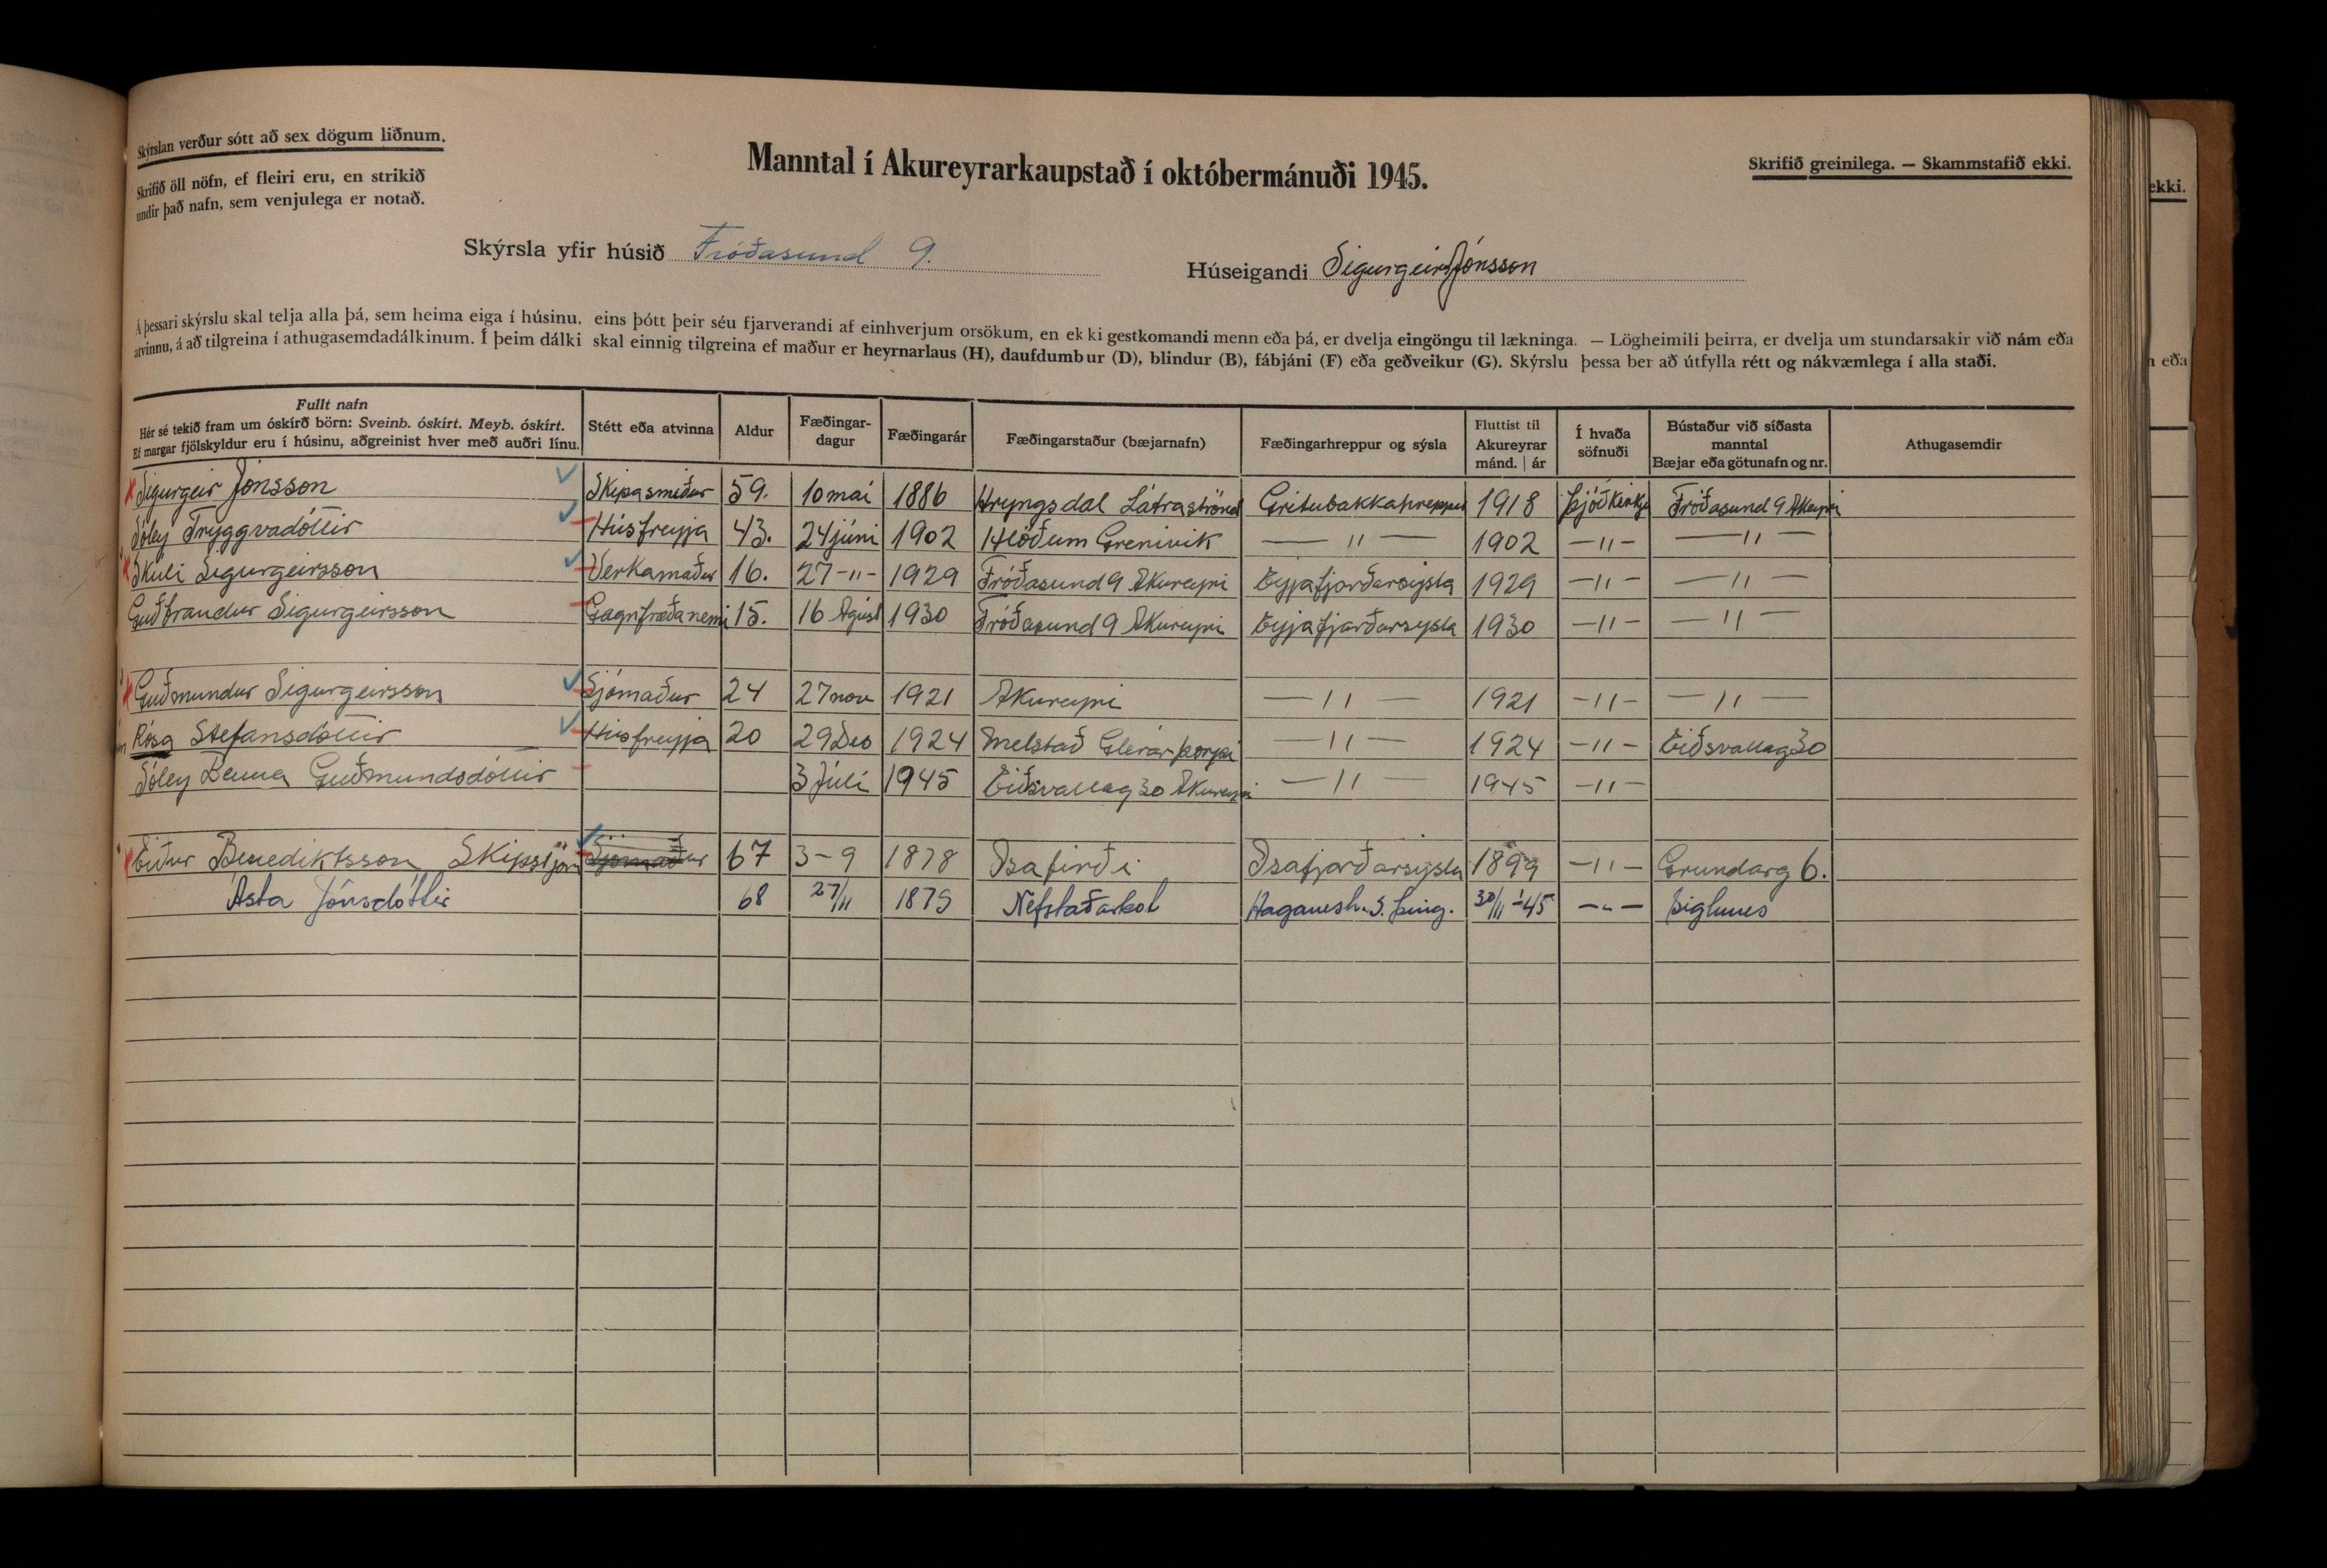 Skýrslan verður sótt að sex dögum liðnum.
Skrifið öll nöfn, ef fleiri eru, en strikið
undir það nafn, sem venjulega er notað.
Manntal í Akureyrarkaupstað í októbermánuði 1945.
Skrifið greinilega. — Skammstafið ekki.
Skýrsla yfir húsið Fróðasund 9.
Húseigandi Sigurgeir Jónsson
Á þessari skýrslu skal telja alla þá, sem heima eiga í húsinu, eins þótt þeir séu fjarverandi af einhverjum orsökum, en ekki gestkomandi menn eða þá, er dvelja eingöngu til lækninga. — Lögheimili þeirra, er dvelja um stundarsakir við nám eða
atvinnu, á að tilgreina í athugasemdadálkinum. Í þeim dálki skal einnig tilgreina ef maður er heyrnarlaus (H), daufdumbur (D), blindur (B), fábjáni (F) eða geðveikur (G). Skýrslu þessa ber að útfylla rétt og nákvæmlega í alla staði.
Fullt nafn
Hér sé tekið fram um óskírð börn: Sveinb. óskírt. Meyb. óskírt.
Ef margar fjölskyldur eru í húsinu, aðgreinist hver með auðri línu.
Stétt eða atvinna
Aldur
Fæðingar-
dagur
Fæðingarár
Fæðingarstaður (bæjarnafn)
Fæðingarhreppur og sýsla
Fluttist til
Akureyrar
mánd. | ár
Í hvaða
söfnuði
Bústaður við síðasta
manntal
Bæjar eða götunafn og nr.
Athugasemdir
Sigurgeir Jónsson Skipasmiður 59. 10 mai 1886 Hryngsdal Látraströnd Gritubakkahreppur 1918 Þjóðkirkju Fróðasund 9 Akureyri
Sóley Tryggvadóttir Húsfreyja 43. 24 júni 1902 Hlöðum Grenivik — " — 1902 — " — — " —
Skuli Sigurgeirsson Verkamaður 16. 27 - " - 1929 Fróðasund 9 Akureyri Eyjafjarðarsýsla 1929 — " — — " —
Guðbrandur Sigurgeirsson Gagnfræðanemi 15. 16 Agúst 1930 Fróðasund 9 Akureyri Eyjafjarðarsysla 1930 — " — — " —
Guðmundur Sigurgeirsson Sjómaður 24 27 nov 1921 Akureyri — " — 1921 — " — — " —
Rósa Stefansdóttir Húsfreyja 20 29 Des 1924 Melstað Glerárþorpi — " — 1924 — " — Eiðsvallag 30
Sóley Benna Guðmundsdóttir 3 Júlí 1945 Eiðsvallag 30 Akureyri — " — 1945 — " —
Eiður Benediktsson Skipstjóri Sjómaður 67 3 - 9 1878 Isafirði Isafjarðarsýsla 1899 — " — Grundarg 6.
Ásta Jónsdóttir 68 27/11 1879 Nefstaðarkot Haganesh. S. Þing. 30/11 - '45 — " — Siglunes
ekki.
eða